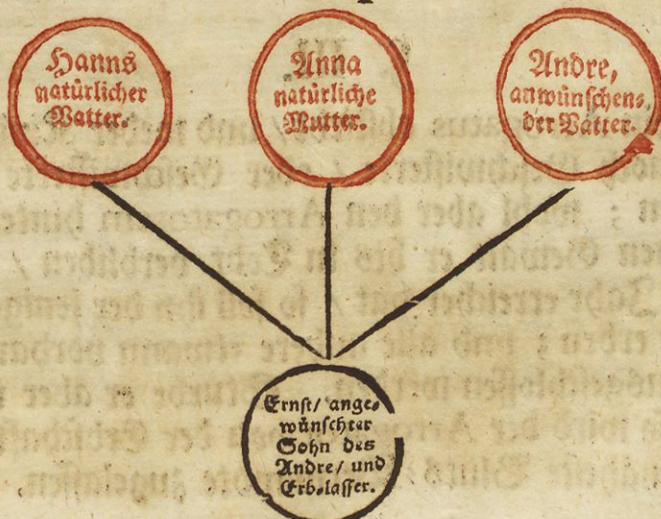 Hanns
natürlicher
Vatter.
Anna
natürliche
Mutter.
Andre,
anwünschen-
der Vatter.
Ernst/ ange-
wünschter
Sohn des
Andre/ und
Erb-lasser.